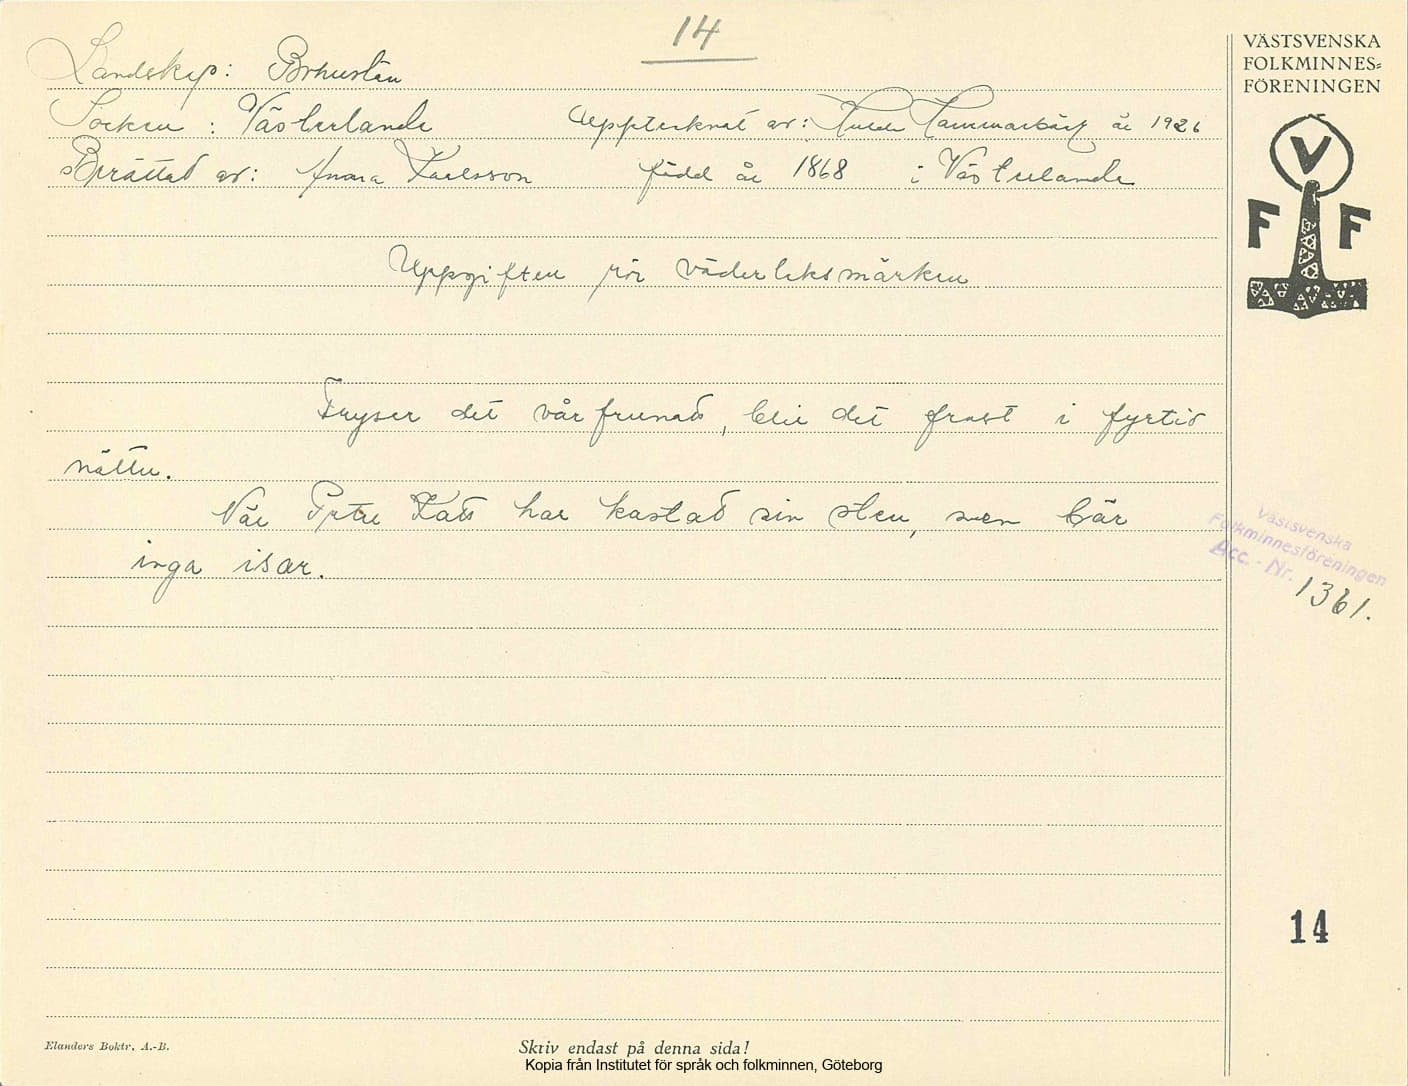 14
VÄSTSVENSKA
FOLKMINNES=
FÖRENINGEN
Landskap: Bohuslän
Socken : Västerlanda Upptecknat av: Hulda Hammarbäck år 1926
Berättat av: Anna Karlsson född år 1868 i Västerlanda
V
F F
Uppgiften rör väderleksmärken
Fryser det vårfrunatt, blir det frost i fyrtio
nätter.
När Peter Katt har kastat sin sten, sven bär
inga isar.
Västsvenska
Folkminnesföreningen
Acc. - Nr. 1361.
14
Elanders Boktr. A.-B.
Skriv endast på denna sida!
Kopia från Institutet för språk och folkminnen, Göteborg